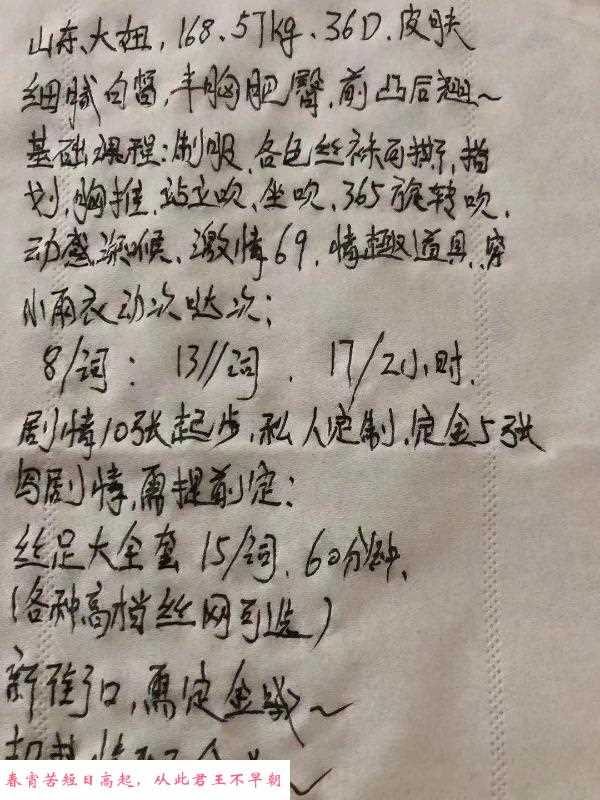 山东、大妞,168.57kg、36D.皮肤
细腻白皙,丰胸肥臀,前凸后翘~
基础课程:制服、各色丝袜可撕,指
划,胸推,站立吹、坐吹,365旋转吹,
动感深喉、激情69,情趣道具,穿
小雨衣动次哒次;
8/词: 13//词、17/2小时.
剧情10张起步,私人定制,定金5张
写剧情,需提前定:
丝足大全套 15/词、60分钟,
(各种高档丝网可选)
新街口,需定金哦~
春宵苦短日高起,从此君王不早朝